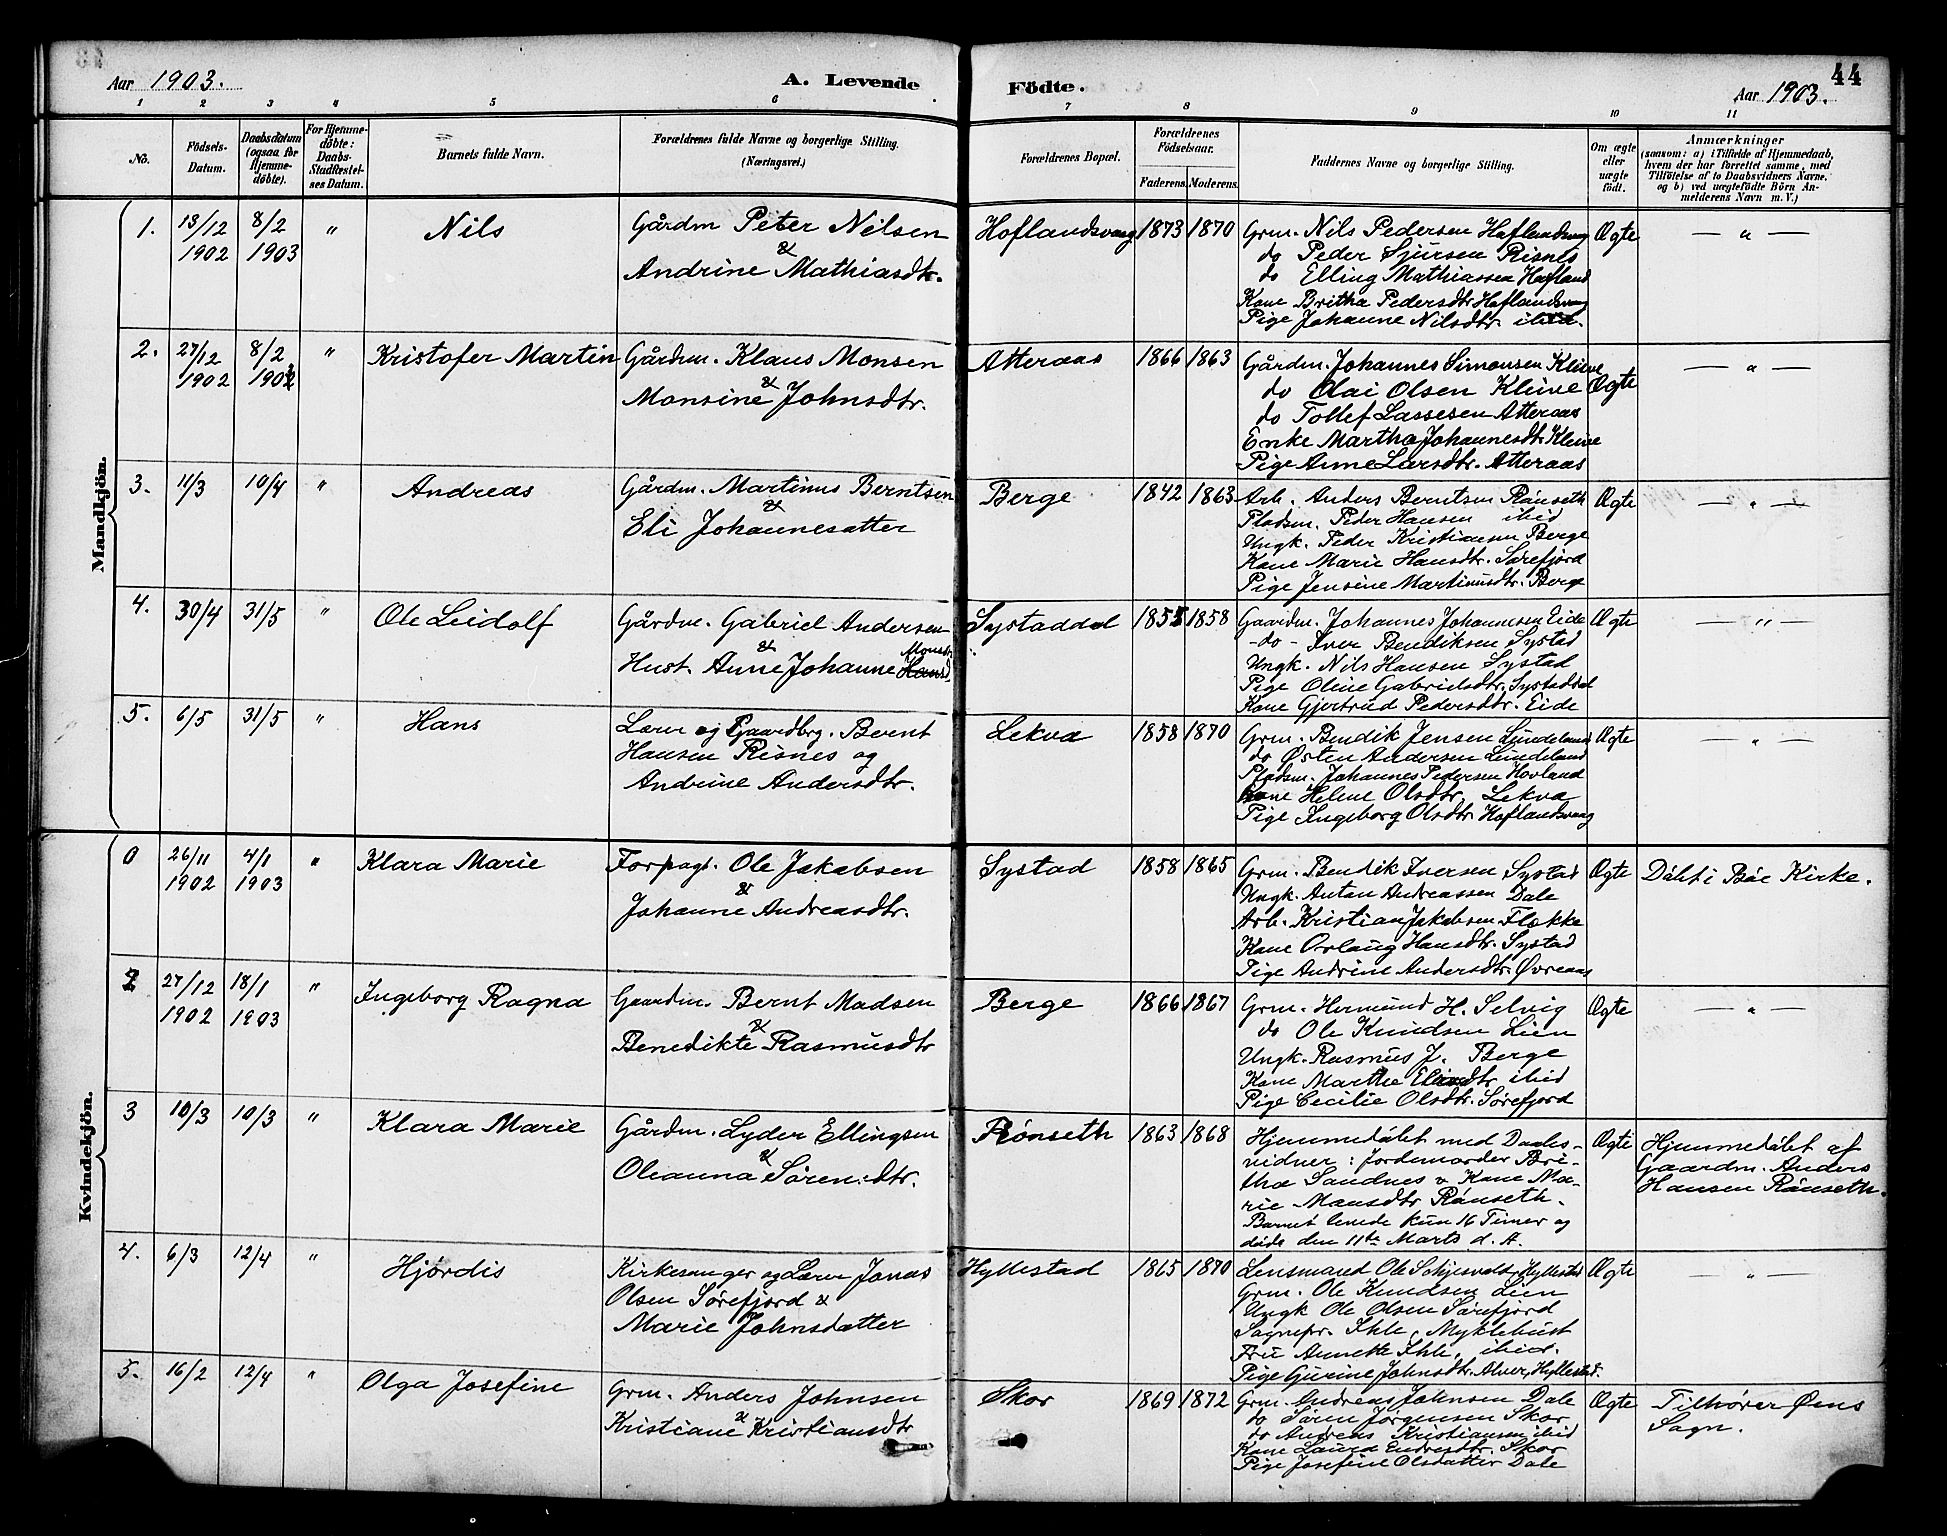 Aar 1903.
A. Levende
Födte.
Aar 1903.
44
1 2 3 4 5 6 7 8 9 10 11
No.
Födsels-
Datum.
Daabsdatum
(ogsaa for
Hjemme-
döbte).
For Hjemme-
döbte:
Daabs-
Stadfæstel-
ses Datum.
Barnets fulde Navn.
Forældrenes fulde Navne og borgerlige Stilling.
(Næringsvei.)
Forældrenes Bopæl.
Forældrenes
Födselsaar.
Faderens. Moderens.
Faddernes Navne og borgerlige Stilling.
Om ægte
eller
uægte
födt.
Anmærkninger
(saasom: a) i Tilfælde af Hjemmedaab,
hvem der har forrettet samme, med
Tilföielse af to Daabsvidners Navne.
og b) ved uægtefödte Börn An-
melderens Navn m. V.)
Mandkjön.
1.
13/12
1902
8/2
1903
"
Nils
Gårdm Peter Nilsen
&
Andrine Mathiasdtr.
Hoflandsvaag
1873 1870
Grm. Nils Pedersen Haflandsvaag
do Peder Sjursen Risnes
do Elling Mathiassen Hafland
Kone Britha Pedersdtr Haflandsvaag
Pige Johanne Nilsdtr. ibid.
Ægte
— " —
2.
27/12
1902
8/2
1903
"
Kristofer Martin
Gårdm. Klaus Monsen
&
Monsine Johnsdtr.
Atteraas
1866 1863
Gårdm. Johannes Simonsen Kleive
do Olai Olsen Kleive
do Tollef Lassesen Atteraas
Enke Martha Johannesdtr Kleive
Pige Anne Larsdtr. Atteraas
Ægte
— " —
3.
11/3
10/4
"
Andreas
Gårdm. Martinus Berntsen
&
Eli Johannesatter
Berge
1842 1863
Arb. Anders Berntsen Rönseth
Pladsm. Peder Hansen ibid
Ungk. Peder Kristiansen Berge
Kone Marie Hansdtr. Sørefjord
Pige Jensine Martinusdtr. Berge
Ægte
— " —
4.
30/4
31/5
"
Ole Leidolf
Gårdm. Gabriel Andersen
&
Hust. Anne Johanne Monsdtr
Systaddal
1855 1858
Gaardm. Johannes Johannesen Eide
- do - Iver Bendiksen Systad
Ungk. Nils Hansen Systad
Pige Oline Gabrielsdtr. Systaddal
Kone Gjertrud Pedersdtr. Eide
Ægte
— " —
5.
6/5
31/5
"
Hans
Lærer og Gaardbrg. Bernt
Hansen Risnes og
Andrine Andersdtr.
Lekva
1858 1870
Grm. Bendik Jensen Lundeland
do Østen Andersen Lundeland
Pladsm. Johannes Pedersen Hovland
Kone Helene Olsdtr. Lekva
Pige Ingeborg Olsdtr Haflandsvaag
Ægte
— " —
Kvindekjön.
0
26/11
1902
4/1
1903
"
Klara Marie
Forpagt. Ole Jakobsen
&
Johanne Andreasdtr.
Systad
1858 1865
Grm. Bendik Iversen Systad
Ungk. Antan Andreassen Dale
Arb. Kristian Jakobsen Flekke
Kone Orlaug Hansdtr. Systad
Pige Andrine Andersdtr. Øvreaas
Ægte
Döbt i Bøe Kirke.
2
27/12
1902
18/1
1903
"
Ingeborg Ragna
Gaardm. Bernt Madsen
&
Benedikte Rasmusdtr
Berge
1866 1867
Grm. Hermund H. Selvig
do Ole Knudsen Lien
Ungk. Rasmus J. Berge
Kone Marthe dtr ibid
Pige Cecilie Olsdtr. Sørefjord
Ægte
— " —
3
10/3
10/3
"
Klara Marie
Gårdm. Lyder Ellingsen
&
Oleanna Sörensdtr.
Rönseth
1863 1868
Hjemmedöbt med Daabs-
vidner: Jordemorder Bri-
tha Sandnes & Kone Ma-
rie Mansdtr Rönseth.
Barnet levede kun 16 Timer og
døde den 11te Marts d. A.
Ægte
Hjemmedöbt af
Gaardm. Anders
Hansen Rönseth.
4.
6/3
12/4
"
Hjørdis
Kirkesanger og Lærer Jonas
Olsen Sørefjord &
Marie Johnsdatter
Hyllestad
1865 1870
Lensmand Ole Hyllestad
Grm. Ole Knudsen Lien
Ungk Ole Olsen Sørefjord
Sognepr. Ihle, Myklebust
Fru Annette Ihle, ibid.
Pige Gurine Johnsdtr. Alver, Hyllestad.
Ægte
— " —
5.
16/2
12/4
"
Olga Josefine
Grm. Anders Johnsen
&
Kristiane Kristiansdtr
Skor
1869 1872
Grm. Andreas Johnsen Dale
do Sören Jörgensen Skor
do Andreas Kristiansen ibid
Kone Laura Endresdtr. Skor
Pige Josefine Olsdatter Dale
Ægte
Tilhører Øens
Sogn.